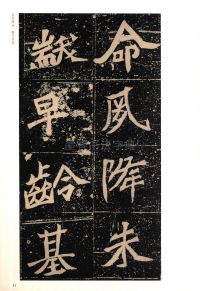 命夙降朱
黻早齡基